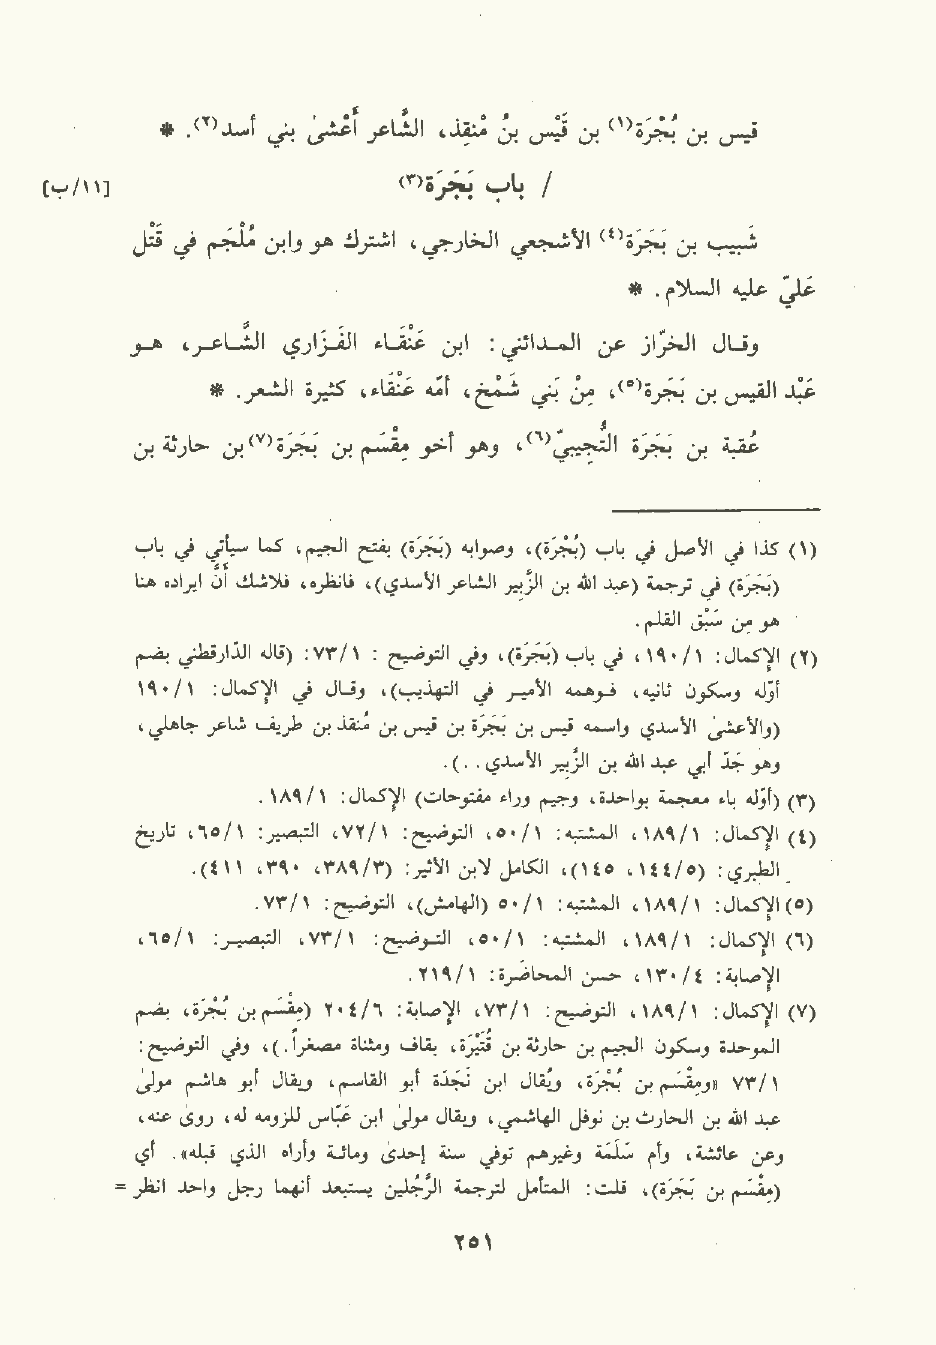 قيس بن بُجْرَة(١) بن قَيْس بنُ مْنقِذ، الشَّاعر أَعْشىٰ بني أسد(٢). *
/ باب بَجَرَة(٣) [١١/ب]
شَبيب بن بَجَرَة(٤) الأشجعي الخارجي، اشترك هو وابن مُلْجَم في قَتْل
عَليّ عليه السلام. *
وقال الخرّاز عن المدائني: ابن عَنْقَاء الفَزَاري الشَّاعر، هو
عَبْد القيس بن بَجَرة(٥)، مِنْ بَني شَمْخ، أمّه عَنْقَاء، كثيرة الشعر. *
عُقبة بن بَجَرَة التُّجِيبيّ(٦)، وهو أخو مِقْسَم بن بَجَرَة(٧) بن حارثة بن
(١) كذا في الأصل في باب (بُجْرَة)، وصوابه (بَجَرَة) بفتح الجيم، كما سيأتي في باب
(بَجَرَة) في ترجمة (عبد الله بن الزَّبِير الشاعر الأسدي)، فانظره، فلاشك أنَّ ايراده هنا
هو مِن سَبْق القلم.
(٢) الإكمال: ١/ ١٩٠، في باب (بَجَرَة)، وفي التوضيح : ١/ ٧٣: (قاله الدّارقطني بضم
أوّله وسكون ثانيه، فوهمه الأمير في التهذيب)، وقال في الإكمال: ١/ ١٩٠
(والأعشىٰ الأسدي واسمه قيس بن بَجَرَة بن قيس بن مُنقذ بن طريف شاعر جاهلي،
وهو جَدّ أبي عبد الله بن الزَّبِير الأسدي..).
(٣) (أوّله باء معجمة بواحدة، وجيم وراء مفتوحات) الإكمال: ١/ ١٨٩.
(٤) الإكمال: ١/ ١٨٩، المشتبه: ١/ ٥٠، التوضيح: ١/ ٧٢، التبصير: ١/ ٦٥، تاريخ
الطبري: (٥/ ١٤٤، ١٤٥)، الكامل لابن الأثير: (٣/ ٣٨٩، ٣٩٠، ٤١١).
(٥) الإكمال: ١/ ١٨٩، المشتبه: ١/ ٥٠ (الهامش)، التوضيح: ١/ ٧٣.
(٦) الإكمال: ١/ ١٨٩، المشتبه: ١/ ٥٠، التوضيح: ١/ ٧٣، التبصير: ١/ ٦٥،
الإصابة: ٤/ ١٣٠، حسن المحاضرة: ١/ ٢١٩.
(٧) الإكمال: ١/ ١٨٩، التوضيح: ١/ ٧٣، الإصابة: ٦/ ٢٠٤ (مِقْسَم بن بُجْرَة، بضم
الموحدة وسكون الجيم بن حارثة بن قُتَيْرَة، بقاف ومثناة مصغراً.)، وفي التوضيح:
١/ ٧٣ «ومِقْسَم بن بُجْرَة، ويُقال ابن نَجْدَة أبو القاسم، ويقال أبو هاشم مولىٰ
عبد الله بن الحارث بن نوفل الهاشمي، ويقال مولىٰ ابن عَبّاس للزومه له، وروىٰ عنه،
وعن عائشة، وأم سَلَمة وغيرهم توفي سنة إحدىٰ ومائة وأراه الذي قبله». أي
(مِقْسَم بن بَجَرَة)، قلت: المتأمل لترجمة الرَّجُلين يستبعد أنهما رجل واحد انظر =
٢٥١